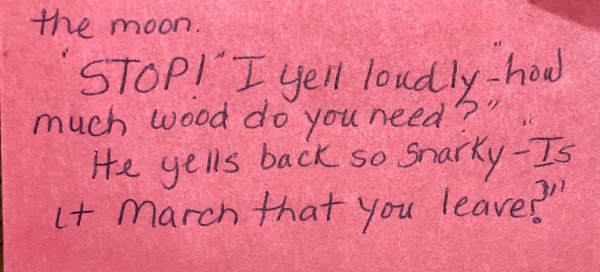 the moon.
"STOP!" I yell loudly - "how
much wood do you need?"
He yells back so snarky - "Is
it March that you leave?"